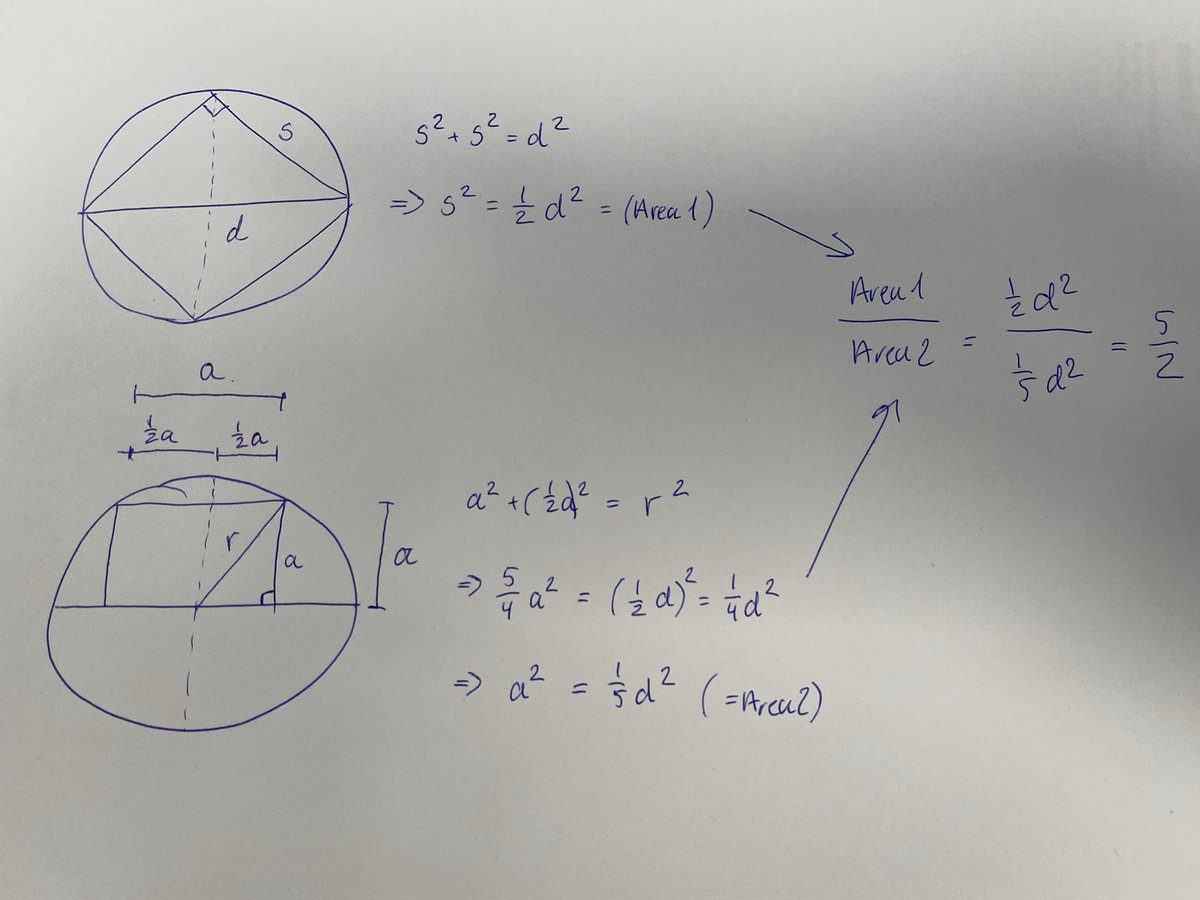 s
d
s² + s² = d²
⇒ s² = ½ d² = (Area 1)
Area 1 / Area 2 = ½ d² / ⅕ d² = 5/2
a.
½a ½a
r
a
a
a² + (½a)² = r²
⇒ 5/4 a² = (½ d)² = ¼ d²
⇒ a² = ⅕ d² (=Area 2)